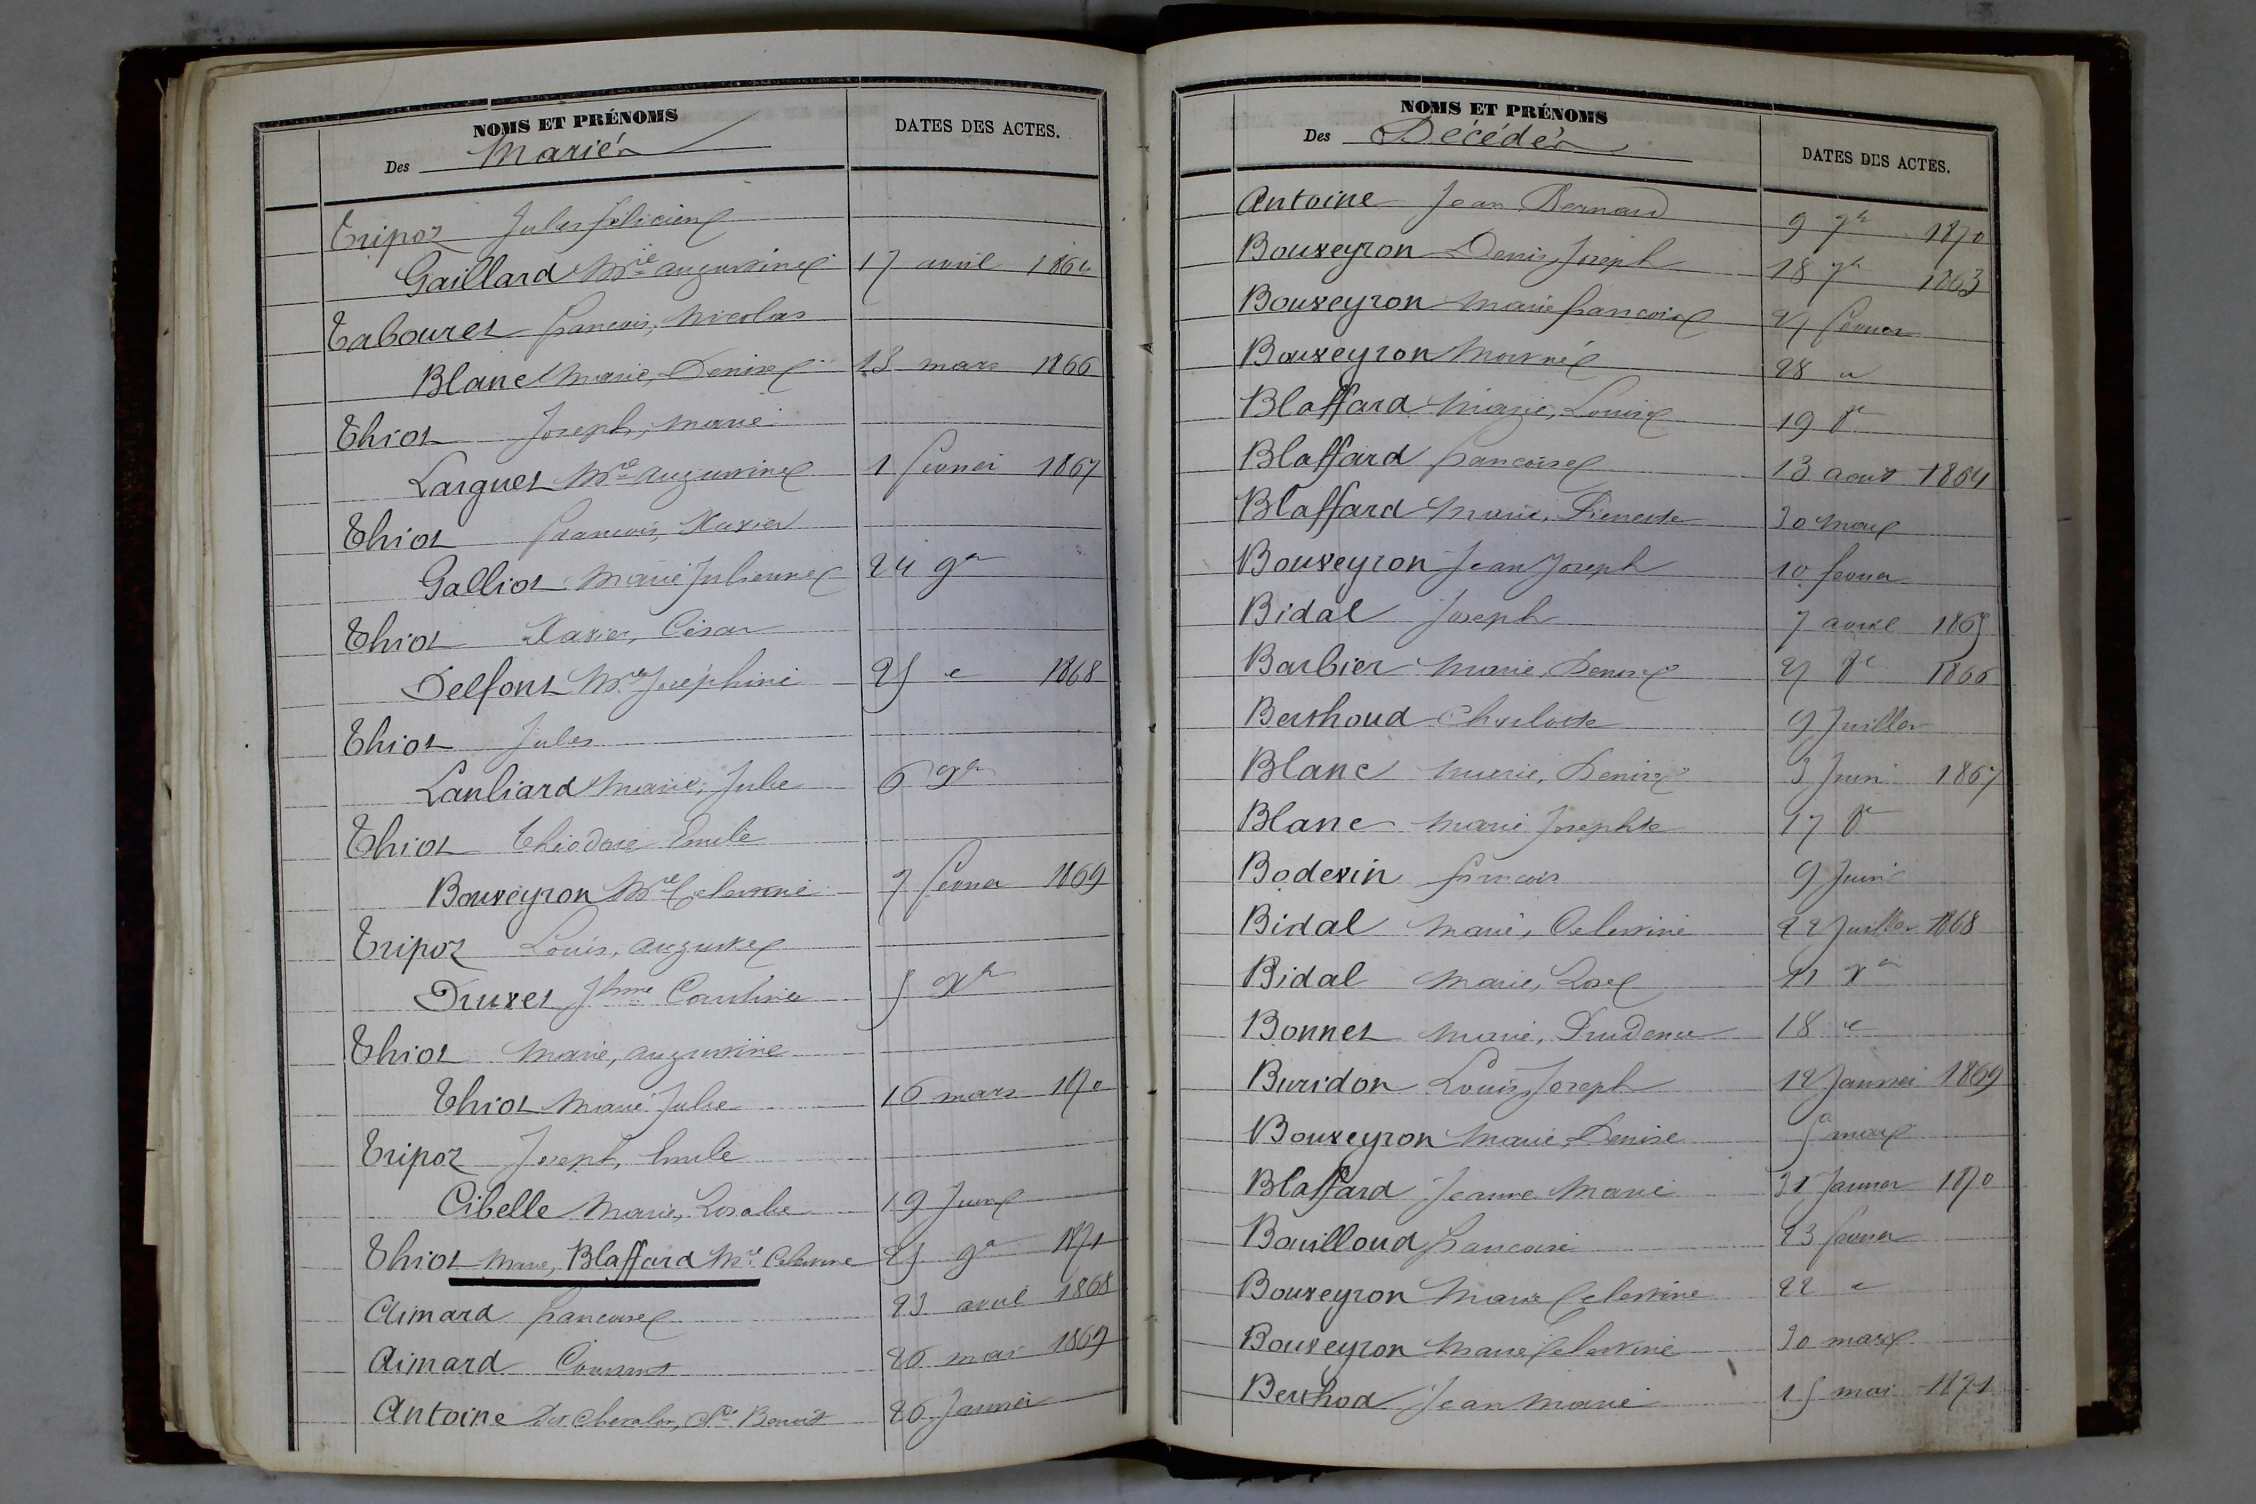 NOMS ET PRÉNOMS
Des Mariés
DATES DES ACTES.
Tripoz Jules félicien
Gaillard Mie augustine 17 avril 1864
Tabouret francois, Nicolas
Blanc marie, Denise 13 mars 1866
Thiot Joseph, marie
Larguet Mie augustine 1 fevrier 1867
Thiot francois, Xavier
Galliot Marie Julienne 24 9re
Thiot Xavier, César
Delfont Mie Joséphine 25 " 1868
Thiot Jules
Lanliard marie, Julie 6
Thiot Théodore Emile
Bouveyron Mie Celestine 7 fevrier 1869
Tripoz Louis, auguste
Druvet Jhine Caroline 5 Xre
Thiot Marie, augustine
Thiot Marie Julie 16 mars 1870
Tripoz Joseph, Emile
Cibelle Marie, Rosalie 19 Juin
Thiot Marie, Blaffard Mie Celestine 25 9re 1871
Aimard francoise 23 avril 1868
Aimard Constant 26 mai 1869
Antoine Chevalier, Benoit 26 Janvier
NOMS ET PRÉNOMS
Des Décédés
DATES DES ACTES.
Antoine Jean Bernard 9 7re 1870
Bouveyron Denis, Joseph 18 7re 1863
Bouveyron Marie francoise 27 fevrier
Bouveyron Mort né 28 "
Blaffard Marie, Louise 19
Blaffard francoise 13 aout 1864
Blaffard Marie, Pierrette 30 mars
Bouveyron Jean Joseph 10 fevrier
Bidal Joseph 7 avril 1865
Barbier Marie, Denise 27 1866
Berthoud Charlotte 9 Juillet
Blanc Marie, Denise 3 Juin 1867
Blanc Marie Josephte 17
Bodevin francois 9 Juin
Bidal Marie, Celestine 22 Juillet 1868
Bidal Marie, Rose 11
Bonnet Marie, Prudence 18 "
Buridon Louis, Joseph 12 Janvier 1869
Bouveyron Marie, Denise 5 mars
Blaffard Jeanne Marie 31 Janvier 1870
Bouilloud francoise 23 fevrier
Bouveyron Marie Celestine 22 "
Bouveyron Marie Celestine 30 mars
Berthod Jean Marie 15 mai 1871